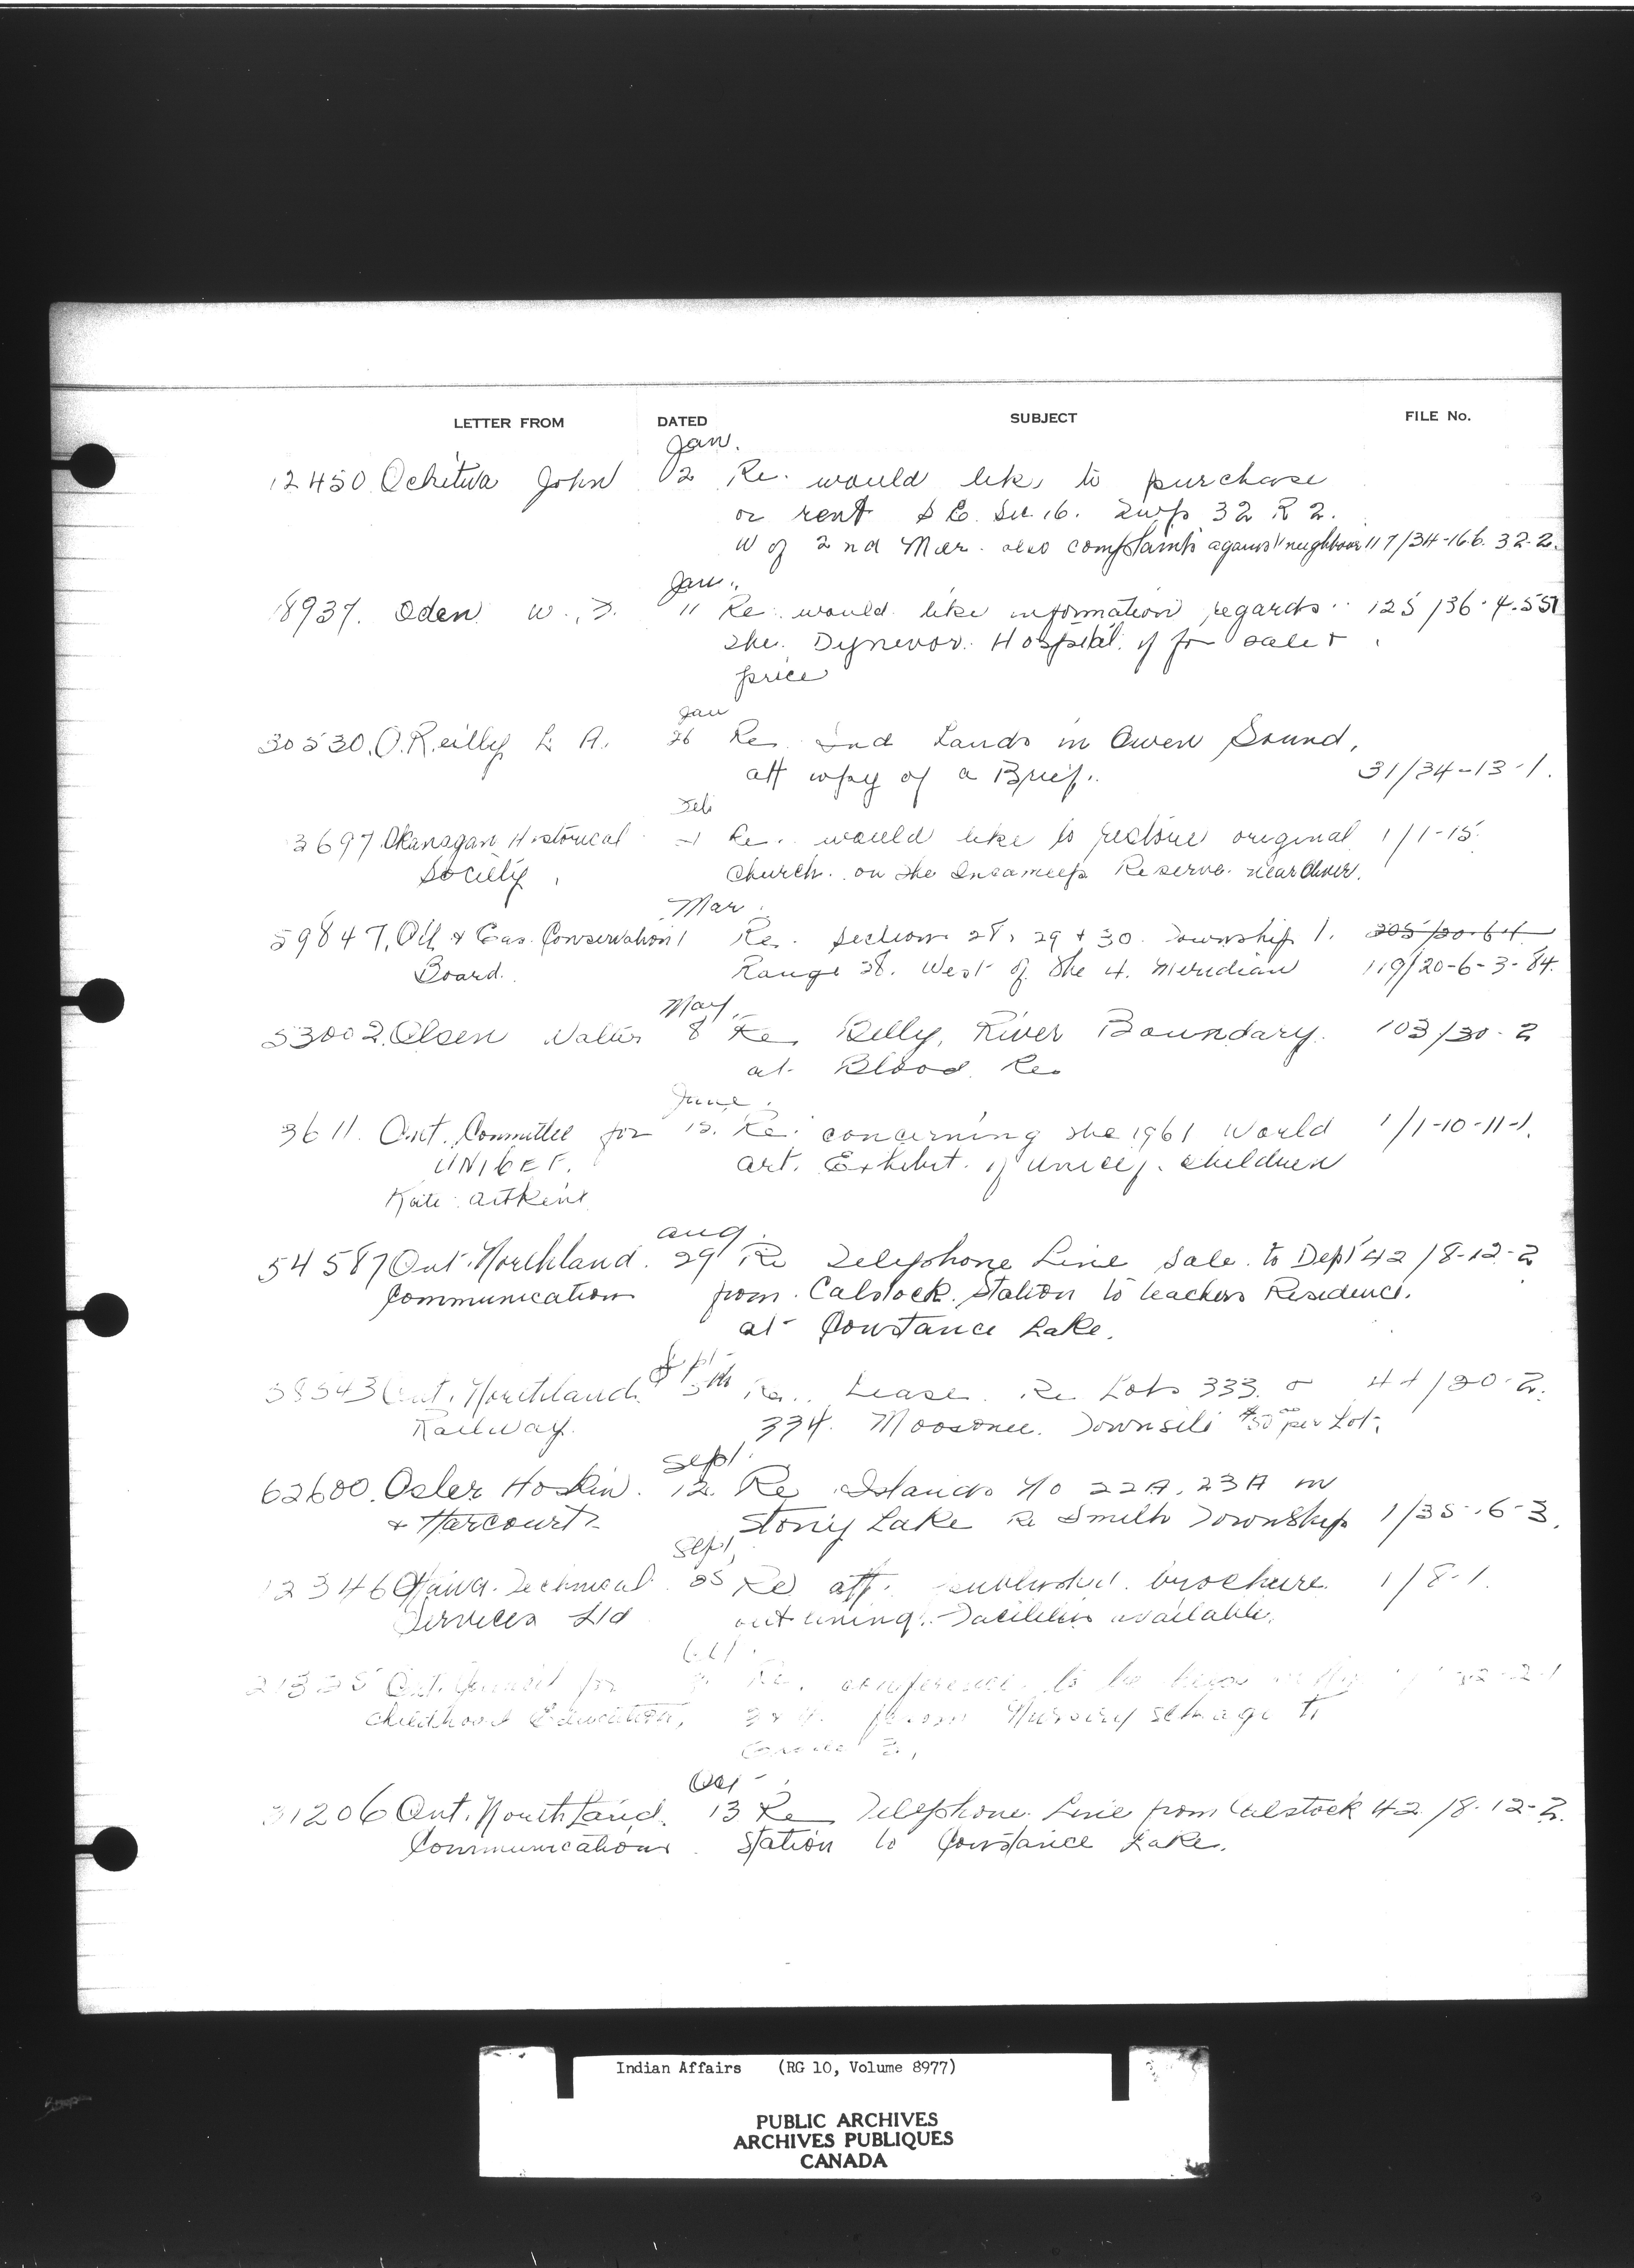 LETTER FROM DATED SUBJECT FILE No.
Jan.
12450 Ochitwa John 2 Re. would like to purchase
or rent S E. Sec 16. Twp 32 R 2.
W of 2nd Mer. also complaints against neighbour 117/34-16.6.32-2.
Jan.
18937. Oden W. 11 Re. would like information regards 125/36-4-551
the Dynevor Hospital if for sale +
price
Jan
30530. O.Reilly L A. 26 Re Ind Lands in Owen Sound,
att copy of a Brief. 31/34-13-1.
Feb
3697 Okanagan Historical Re. would like to restore original 1/1-15
Society church on the Inkameep Reserve near Oliver.
Mar
59847. Oil & Gas Conservation 1 Re. Section 28, 29 + 30. Township 1. 205/20-6-4
Board. Range 28. West of the 4. Meridian 119/20-6-3-84.
May
53002. Olsen Walter 8 Re Belly River Boundary 103/30-2
at Blood Res
June
3611. Ont. Committee for 12. Re. concerning the 1961 World 1/1-10-11-1.
UNICEF. art. Exhibit. of Unicef. children
Kate Aitkens
Aug.
54587 Ont. Northland. 29 Re Telephone Line sale to Dept 42/8-12-2
Communication from Calstock Station to teachers Residence.
at Constance Lake.
Sept
58543 Ont. Northland 5th Re. Lease. Re Lots 333. & 44/20-2.
Railway. 334. Moosonee Townsite $50 00 per Lot.
Sept.
62600. Osler Hoskin. 12. Re Islands No 22A. 23A in
& Harcourt Stony Lake Re Smith Township 1/35-6-3.
Sept,
12346 Ottawa Technical 25 Re att. published brochure 1/8-1.
Services Ltd outlining Facilities available.
Oct
Ont. Council for Re. conference to be
childhood Education, from Nursery to
Oct
31206 Ont. North Land. 13 Re Telephone Line from Calstock 42/8-12-2.
Communications Station to Constance Lake.
Indian Affairs (RG 10, Volume 8977)
PUBLIC ARCHIVES
ARCHIVES PUBLIQUES
CANADA